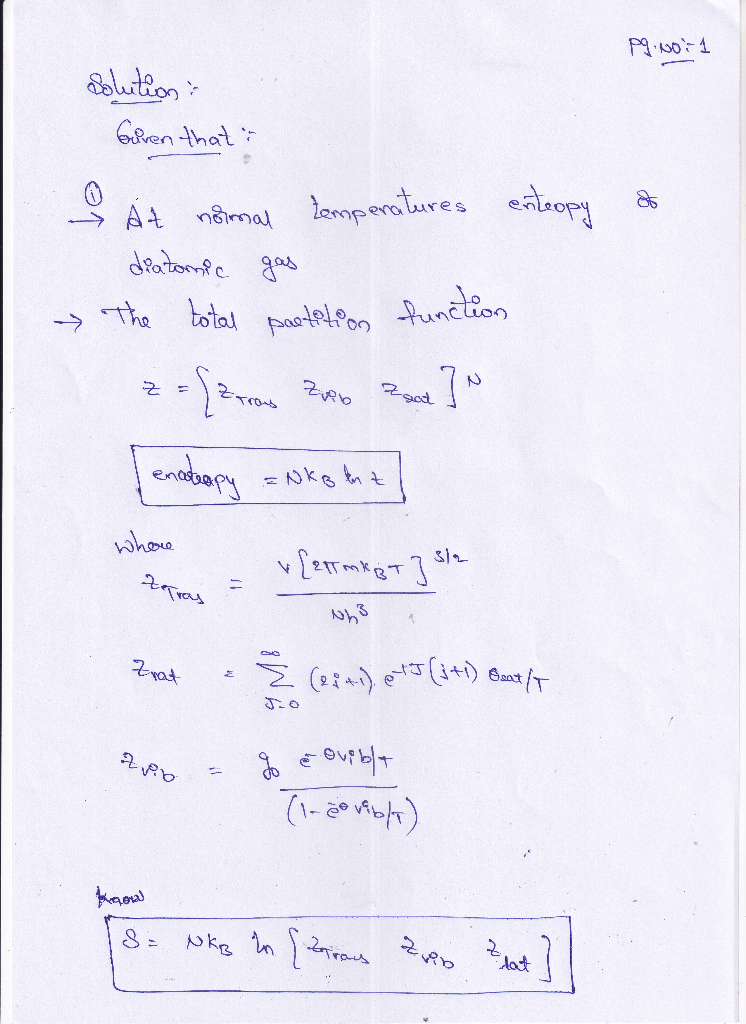 Pg.No:-1
Solution :-
Given that :-
① → At normal temperatures entropy of
diatomic gas
→ The total partition function
z = [z_Trans z_vib z_rot]^N
entropy = NK_B ln z
where
z_Tras = V[2πmK_BT]^3/2 / Nh^3
z_rot = Σ_{J=0}^{∞} (2j+1) e^-J(j+1) θrot/T
z_vib = g_0 e^-θvib/T / (1-e^-θvib/T)
know
S = NK_B ln [z_Trans z_vib z_rot]